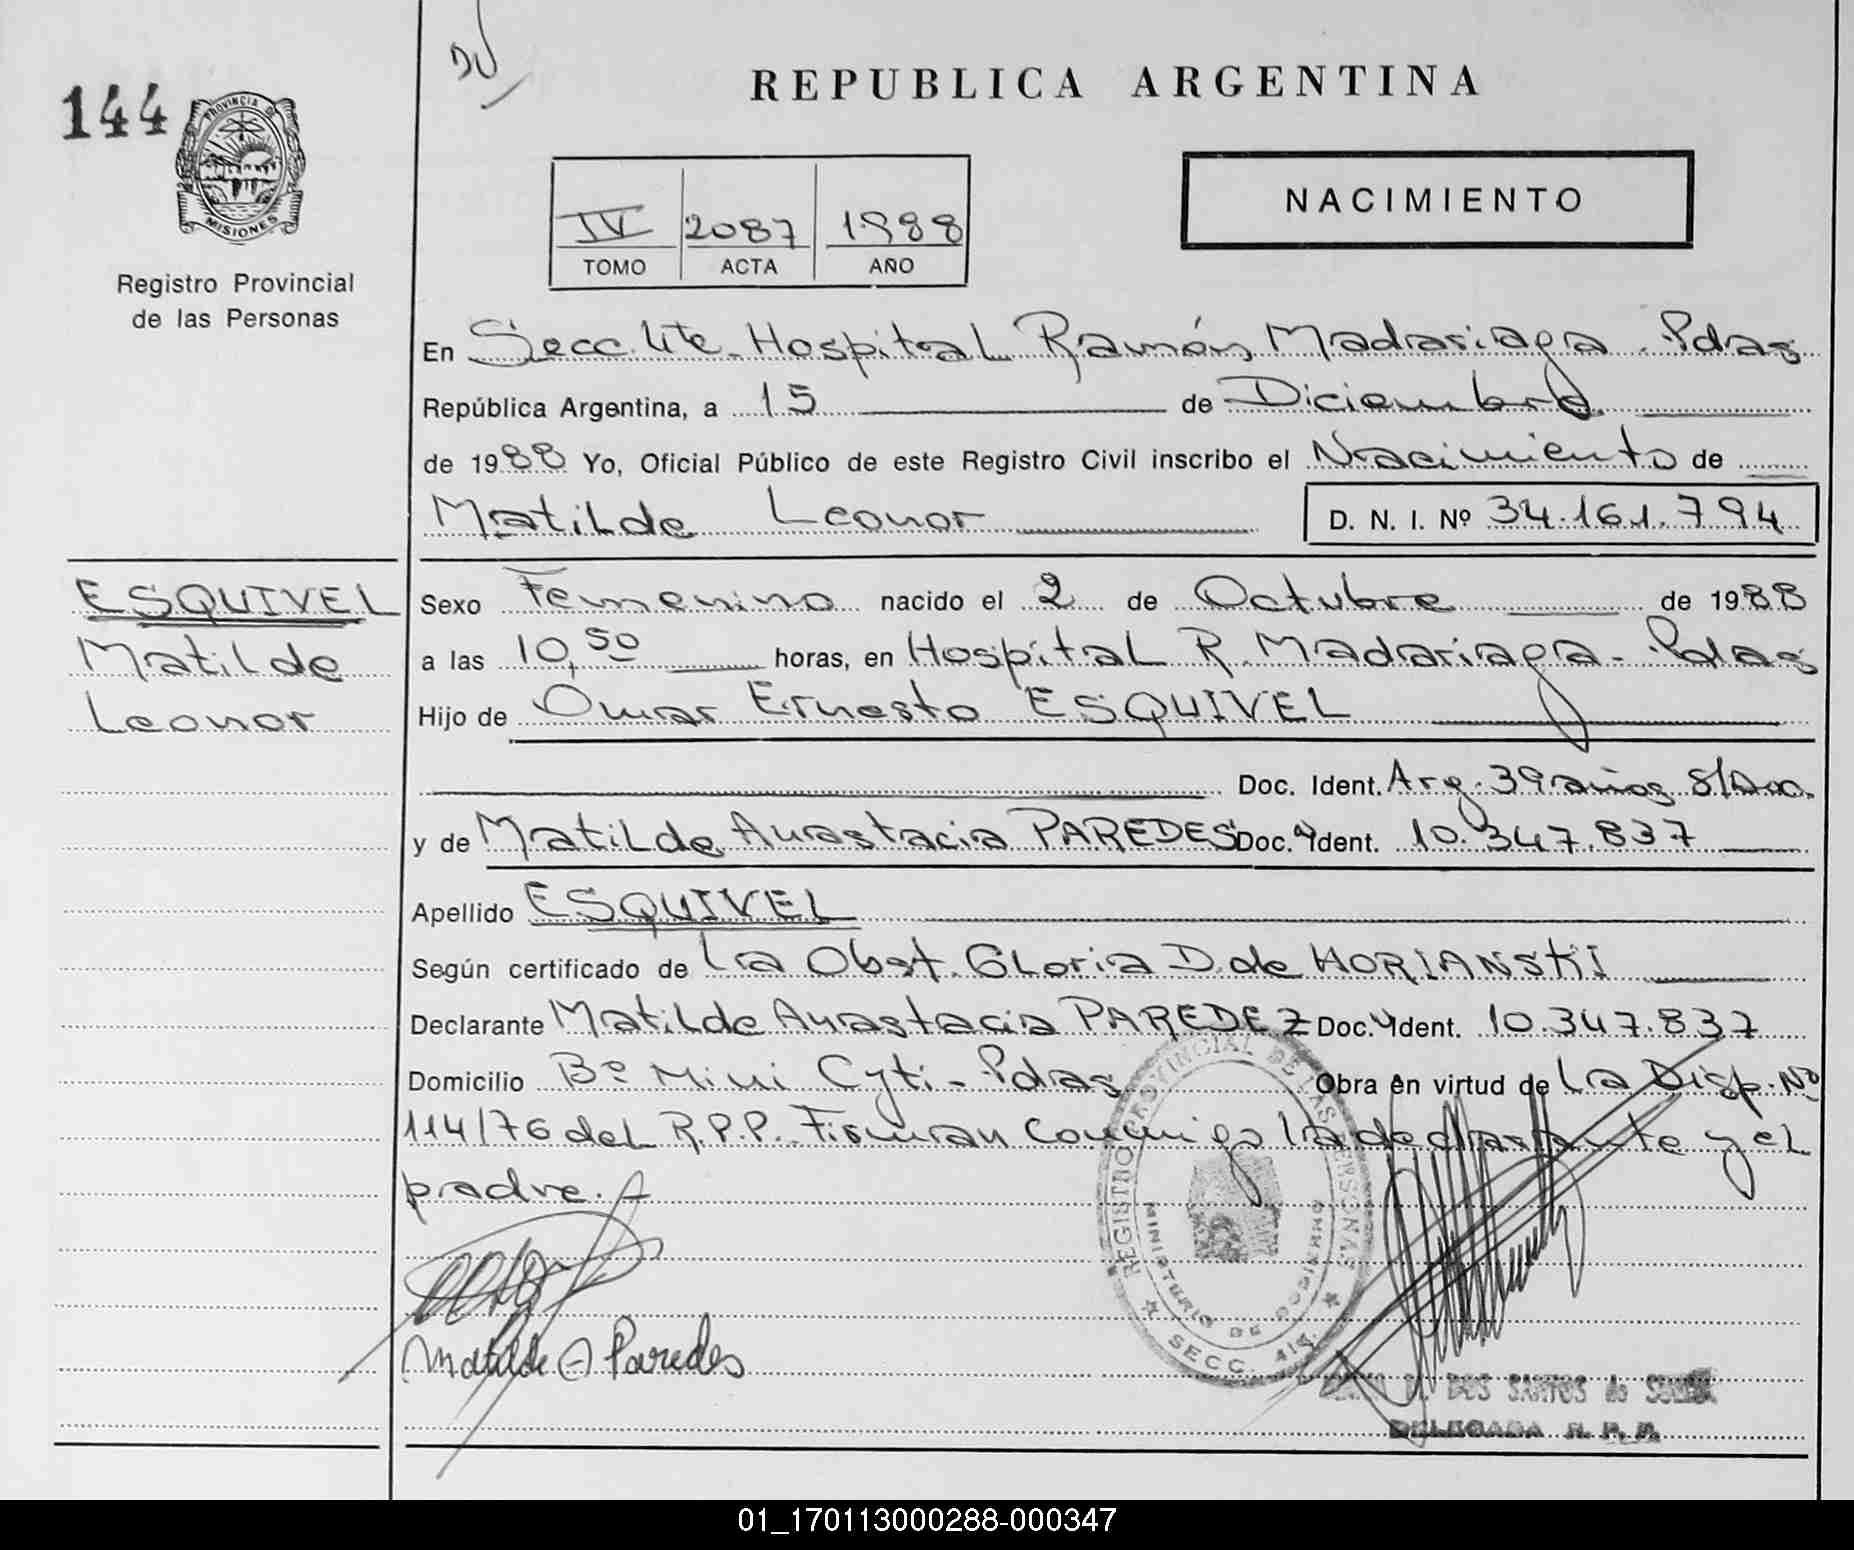 144
PROVINCIA DE
MISIONES
Registro Provincial
de las Personas
REPUBLICA ARGENTINA
NACIMIENTO
IV 2087 1988
TOMO ACTA AÑO
En Secc. 4te. Hospital Ramón Madariaga - Pdas
República Argentina, a 15 de Diciembre
de 1988 Yo, Oficial Público de este Registro Civil inscribo el Nacimiento de
Matilde Leonor D. N. I. Nº 34.161.794
ESQUIVEL
Matilde
Leonor
Sexo Femenino nacido el 2 de Octubre de 1988
a las 10,50 horas, en Hospital R. Madariaga - Pdas
Hijo de Omar Ernesto ESQUIVEL
Doc. Ident. Arg. 39 años S/Doc.
y de Matilde Anastacia PAREDES Doc. Ident. 10.347.837
Apellido ESQUIVEL
Según certificado de La Obst. Gloria D. de HORIANSKI
Declarante Matilde Anastacia PAREDEZ Doc. Ident. 10.347.837
Domicilio Bº Mini Cyti - Pdas Obra en virtud de La Disp. Nº
114/76 del R.P.P. Firman conmigo la declarante y el
padre.
Matilde A Paredes
REGISTRO PROVINCIAL DE LAS PERSONAS
MINISTERIO DE GOBIERNO
SECC. 4ta.
DOS SANTOS de
DELEGADA R. P. P.
01_170113000288-000347